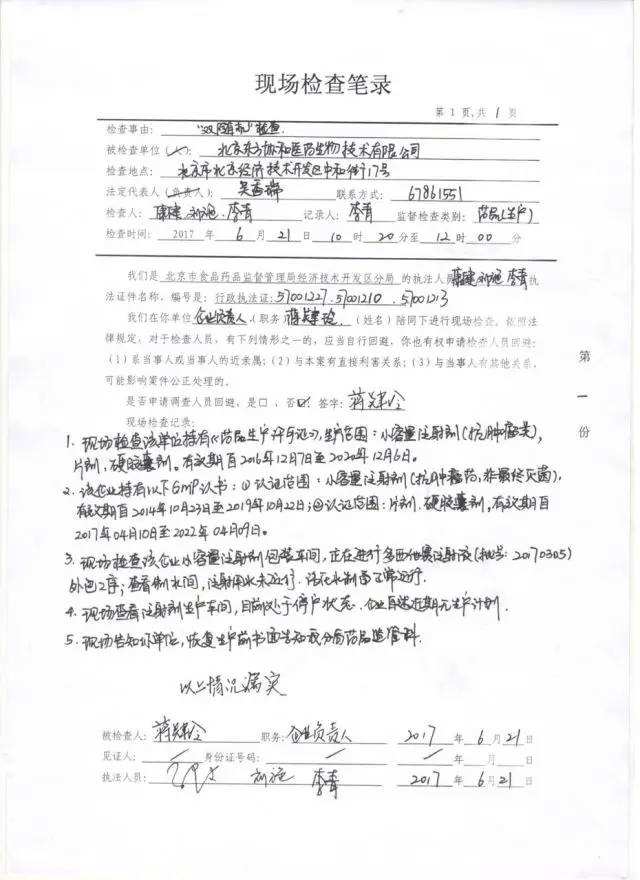 现场检查笔录
第 1 页,共 1 页
检查事由: “双随机”检查.
被检查单位(人): 北京东方协和医药生物技术有限公司
检查地点: 北京市北京经济技术开发区中和街17号
法定代表人(负责人): 吴 瑞 联系方式: 67861551
检查人: 康建、刘 李青 记录人: 李青 监督检查类别: 药品(生产)
检查时间: 2017 年 6 月 21 日 10 时 20 分至 12 时 00 分
我们是 北京市食品药品监督管理局经济技术开发区分局 的执法人员 康建、刘 李青 执
法证件名称、编号是: 行政执法证:57001227、57001210、57001213
我们在你单位 企业负责人 (职务) 蒋 玲 (姓名) 陪同下进行现场检查。依照法
律规定,对于检查人员,有下列情形之一的,应当自行回避,你也有权申请检查人员回避:
(1)系当事人或当事人的近亲属;(2)与本案有直接利害关系;(3)与当事人有其他关系,
可能影响案件公正处理的。
是否申请调查人员回避,是口,否☑ 签字: 蒋 玲
现场检查记录:
1、现场检查该单位持有《药品生产许可证》,生产范围:小容量注射剂(抗肿瘤类),
片剂、硬胶囊剂。有效期自2016年12月7日至2020年12月6日。
2、该企业持有以下GMP认书:①认证范围:小容量注射剂(抗肿瘤药,非最终灭菌),
有效期自2014年10月23日至2019年10月22日;②认证范围:片剂、硬胶囊剂,有效期自
2017年04月10日至2022年04月09日。
3、现场检查该企业小容量注射剂包装车间,正在进行多西他赛注射液(批号:20170305)
外包工序;查看制水间,注射用水未运行、纯化水制备正常运行.
4、现场查看注射剂生产车间,目前处于停产状态,企业自述近期无生产计划.
5、现场告知你单位,恢复生产前书面告知我分局药品监管科.
以上情况属实
被检查人: 蒋 玲 职务: 企业负责人 2017 年 6 月 21 日
见证人: / 身份证号码: / / 年 月 日
执法人员: 刘 李青 2017 年 6 月 21 日
第
一
份